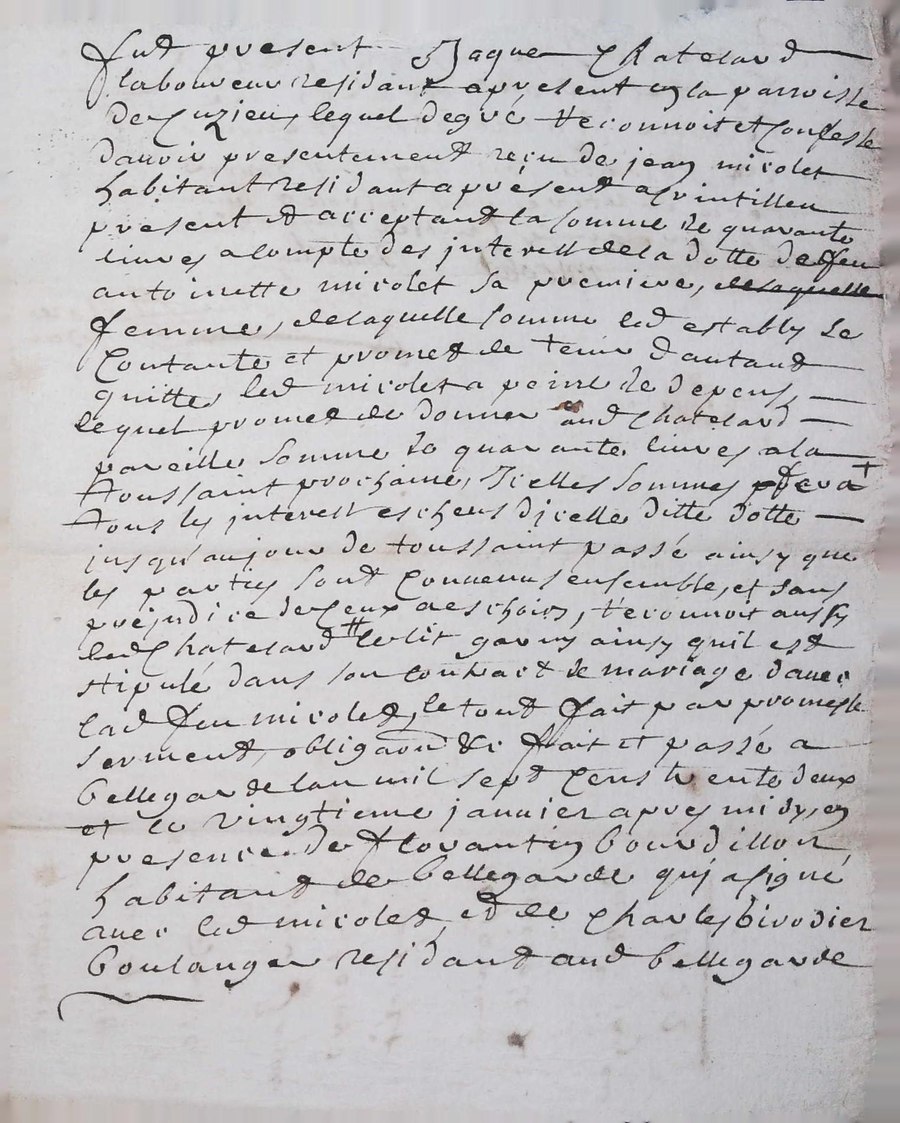 fud present Jaque Chatelard
laboureur residant apresent en la parroisse
de Cuzieu, lequel de gré reconnoit et confesse
davoir presentement reçu de jean micolet
habitant residant a présent a
présent et acceptant la somme de quarante
livres a compte des interest de la dotte de feu
antoinette micolet sa premiere, de laquelle
femme, de laquelle somme led establi se
Contante et promet de tenir dautand
quitte led micolet a peine de depens,
lequel promet de donner aud Chatelard
pareille somme de quarante livres a la
toussaint prochaine, Icelles sommes fera
tous les interest escheus dicelle ditte dotte
jusqu'au jour de toussaint passé ainsy que
les parties sont Convenus ensemble, et sans
préjudice de Ceux a eschoir, reconnoit aussy
led Chatelard le lit garny ainsy quil est
stipulé dans son contract de mariage avec
lad feu micolet, le tout fait par promesse
serment, obligaon &c fait et passé a
bellegarde lan mil sept Cens trente deux
et le vingtieme janvier apres midy, en
presence de florantin bourdillon
habitant de bellegarde qui a signé
avec led micolet et de Charles birodier
boulanger residant aud bellegarde